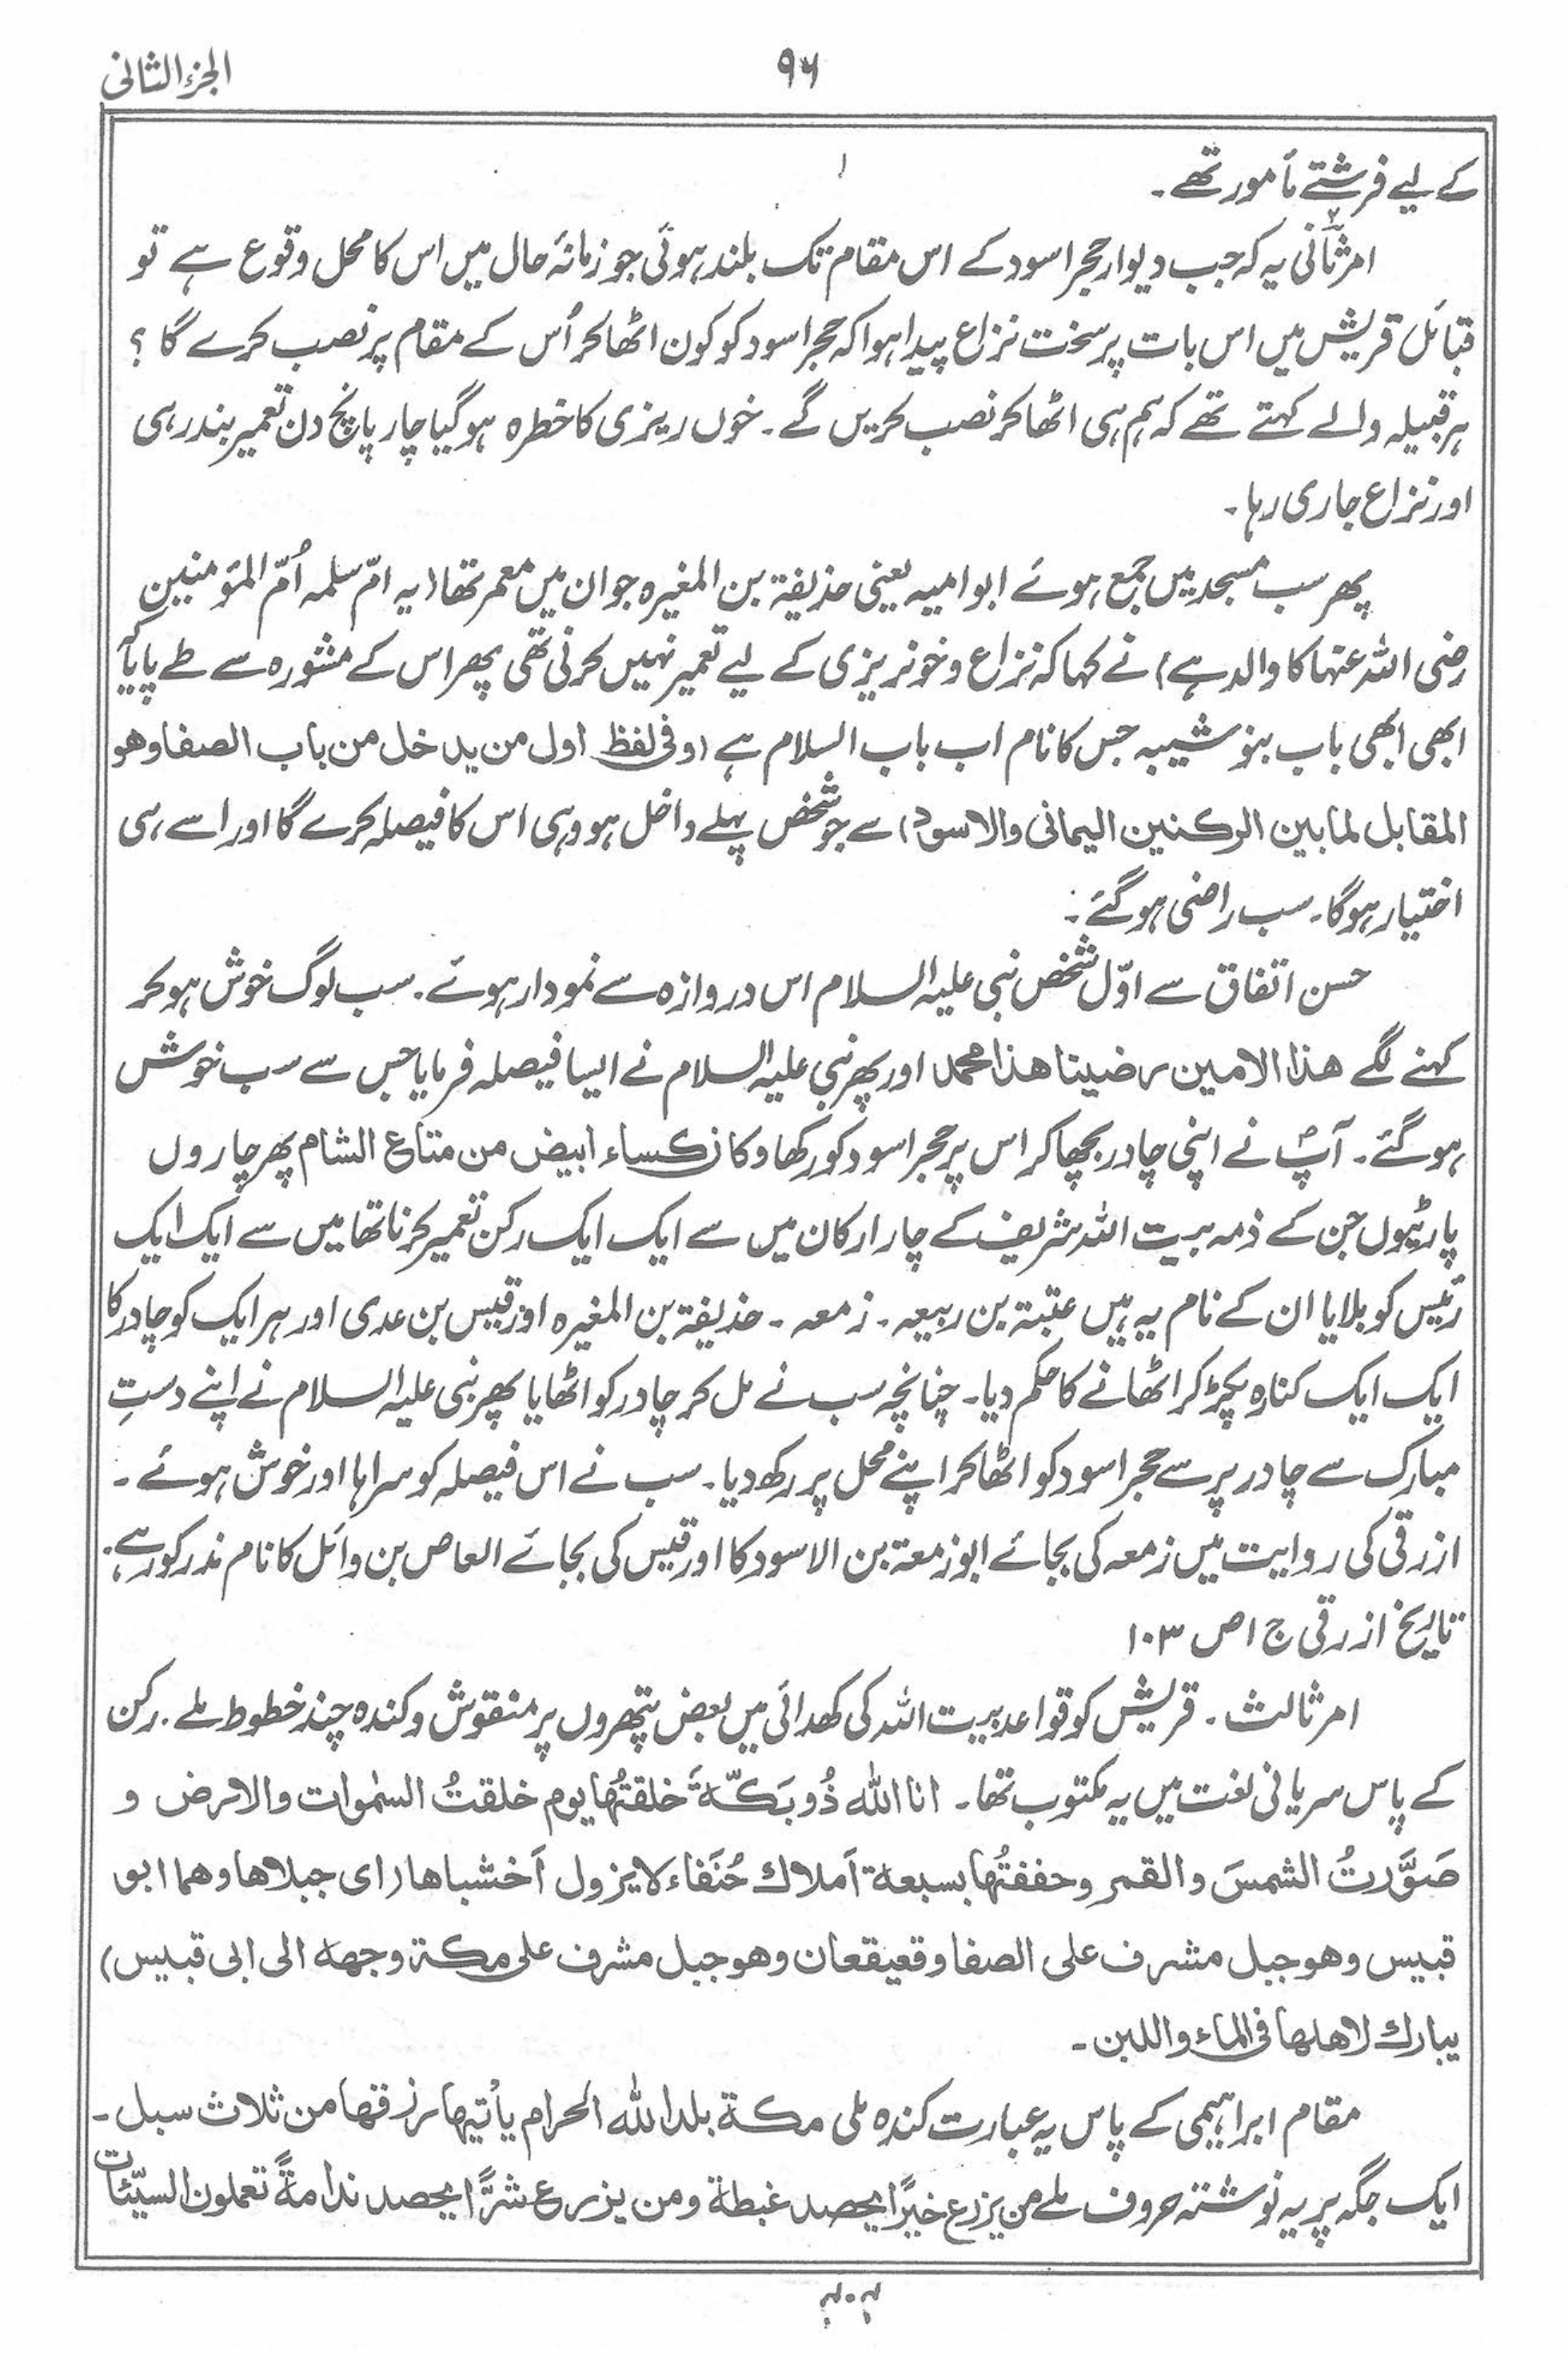 الجزء الثانی
۹۶
کے لیے فرشتے مأمور تھے۔
امر ثانی یہ کہ جب دیوار حجر اسود کے اس مقام تک بلند ہوئی جو زمانۂ حال میں اس کا محل وقوع ہے تو
قبائل قریش میں اس بات پر سخت نزاع پیدا ہوا کہ حجر اسود کو کون اٹھا کر اُس کے مقام پر نصب کرے گا ؟
ہر قبیلہ والے کہتے تھے کہ ہم ہی اٹھا کر نصب کریں گے۔ خوں ریزی کا خطرہ ہوگیا چار پانچ دن تعمیر بند رہی
اور نزاع جاری رہا۔
پھر سب مسجد میں جمع ہوئے ابو امیہ یعنی حذیفۃ بن المغیرہ جو ان میں معمر تھا (یہ امّ سلمہ اُمّ المؤمنین
رضی اللہ عنہا کا والد ہے) نے کہا کہ نزاع و خونریزی کے لیے تعمیر نہیں کرنی تھی پھر اس کے مشورہ سے طے پایا
ابھی ابھی باب بنو شیبہ جس کا نام اب باب السلام ہے (وفی لفظ اول من یدخل من باب الصفا وھو
المقابل لما بین الرکنین الیمانی والاسود) سے جو شخص پہلے داخل ہو وہی اس کا فیصلہ کرے گا اور اسے ہی
اختیار ہوگا۔ سب راضی ہوگئے۔
حسن اتفاق سے اوّل شخص نبی علیہ السلام اس دروازہ سے نمودار ہوئے۔ سب لوگ خوش ہو کر
کہنے لگے ھذا الامین رضینا ھذا محمد اور پھر نبی علیہ السلام نے ایسا فیصلہ فرمایا جس سے سب خوش
ہوگئے۔ آپؐ نے اپنی چادر بچھا کر اس پر حجر اسود کو رکھا وکان کساء ابیض من متاع الشام پھر چاروں
پارٹیوں جن کے ذمہ بیت اللہ شریف کے چار ارکان میں سے ایک ایک رکن تعمیر کرنا تھا میں سے ایک ایک
رئیس کو بلایا ان کے نام یہ ہیں عتبۃ بن ربیعہ۔ زمعہ۔ حذیفۃ بن المغیرہ اور قیس بن عدی اور ہر ایک کو چادر کا
ایک ایک کنارہ پکڑ کر اٹھانے کا حکم دیا۔ چنانچہ سب نے مل کر چادر کو اٹھایا پھر نبی علیہ السلام نے اپنے دستِ
مبارک سے چادر پر سے حجر اسود کو اٹھا کر اپنے محل پر رکھ دیا۔ سب نے اس فیصلہ کو سراہا اور خوش ہوئے۔
ازرقی کی روایت میں زمعہ کی بجائے ابو زمعۃ بن الاسود کا اور قیس کی بجائے العاص بن وائل کا نام مذکور ہے۔
تاریخ ازرقی ج ۱ ص ۱۰۳
امر ثالث۔ قریش کو قواعد بیت اللہ کی کھدائی میں بعض پتھروں پر منقوش و کندہ چند خطوط ملے۔ رکن
کے پاس سریانی لغت میں یہ مکتوب تھا۔ انا اللہ ذُو بَکّۃَ خلقتُھا یوم خلقتُ السمٰوات والارض و
صَوَّرتُ الشمسَ والقمر وحففتُھا بسبعۃ اَملاک حُنَفاء لا یزول اَخشباھا (ای جبلاھا وھما ابو
قبیس وھو جبل مشرف علی الصفا وقعیقعان وھو جبل مشرف علی مکۃ وجھہ الی ابی قبیس)
یبارک لاھلھا فی الماء واللبن۔
مقام ابراہیمی کے پاس یہ عبارت کندہ ملی مکۃ بلد اللہ الحرام یأتیھا رزقھا من ثلاث سبل۔
ایک جگہ پر یہ نوشتہ حروف ملے من یزرع خیرًا یحصد غبطۃ ومن یزرع شرًّا یحصد ندامۃً تعملون السیّئات